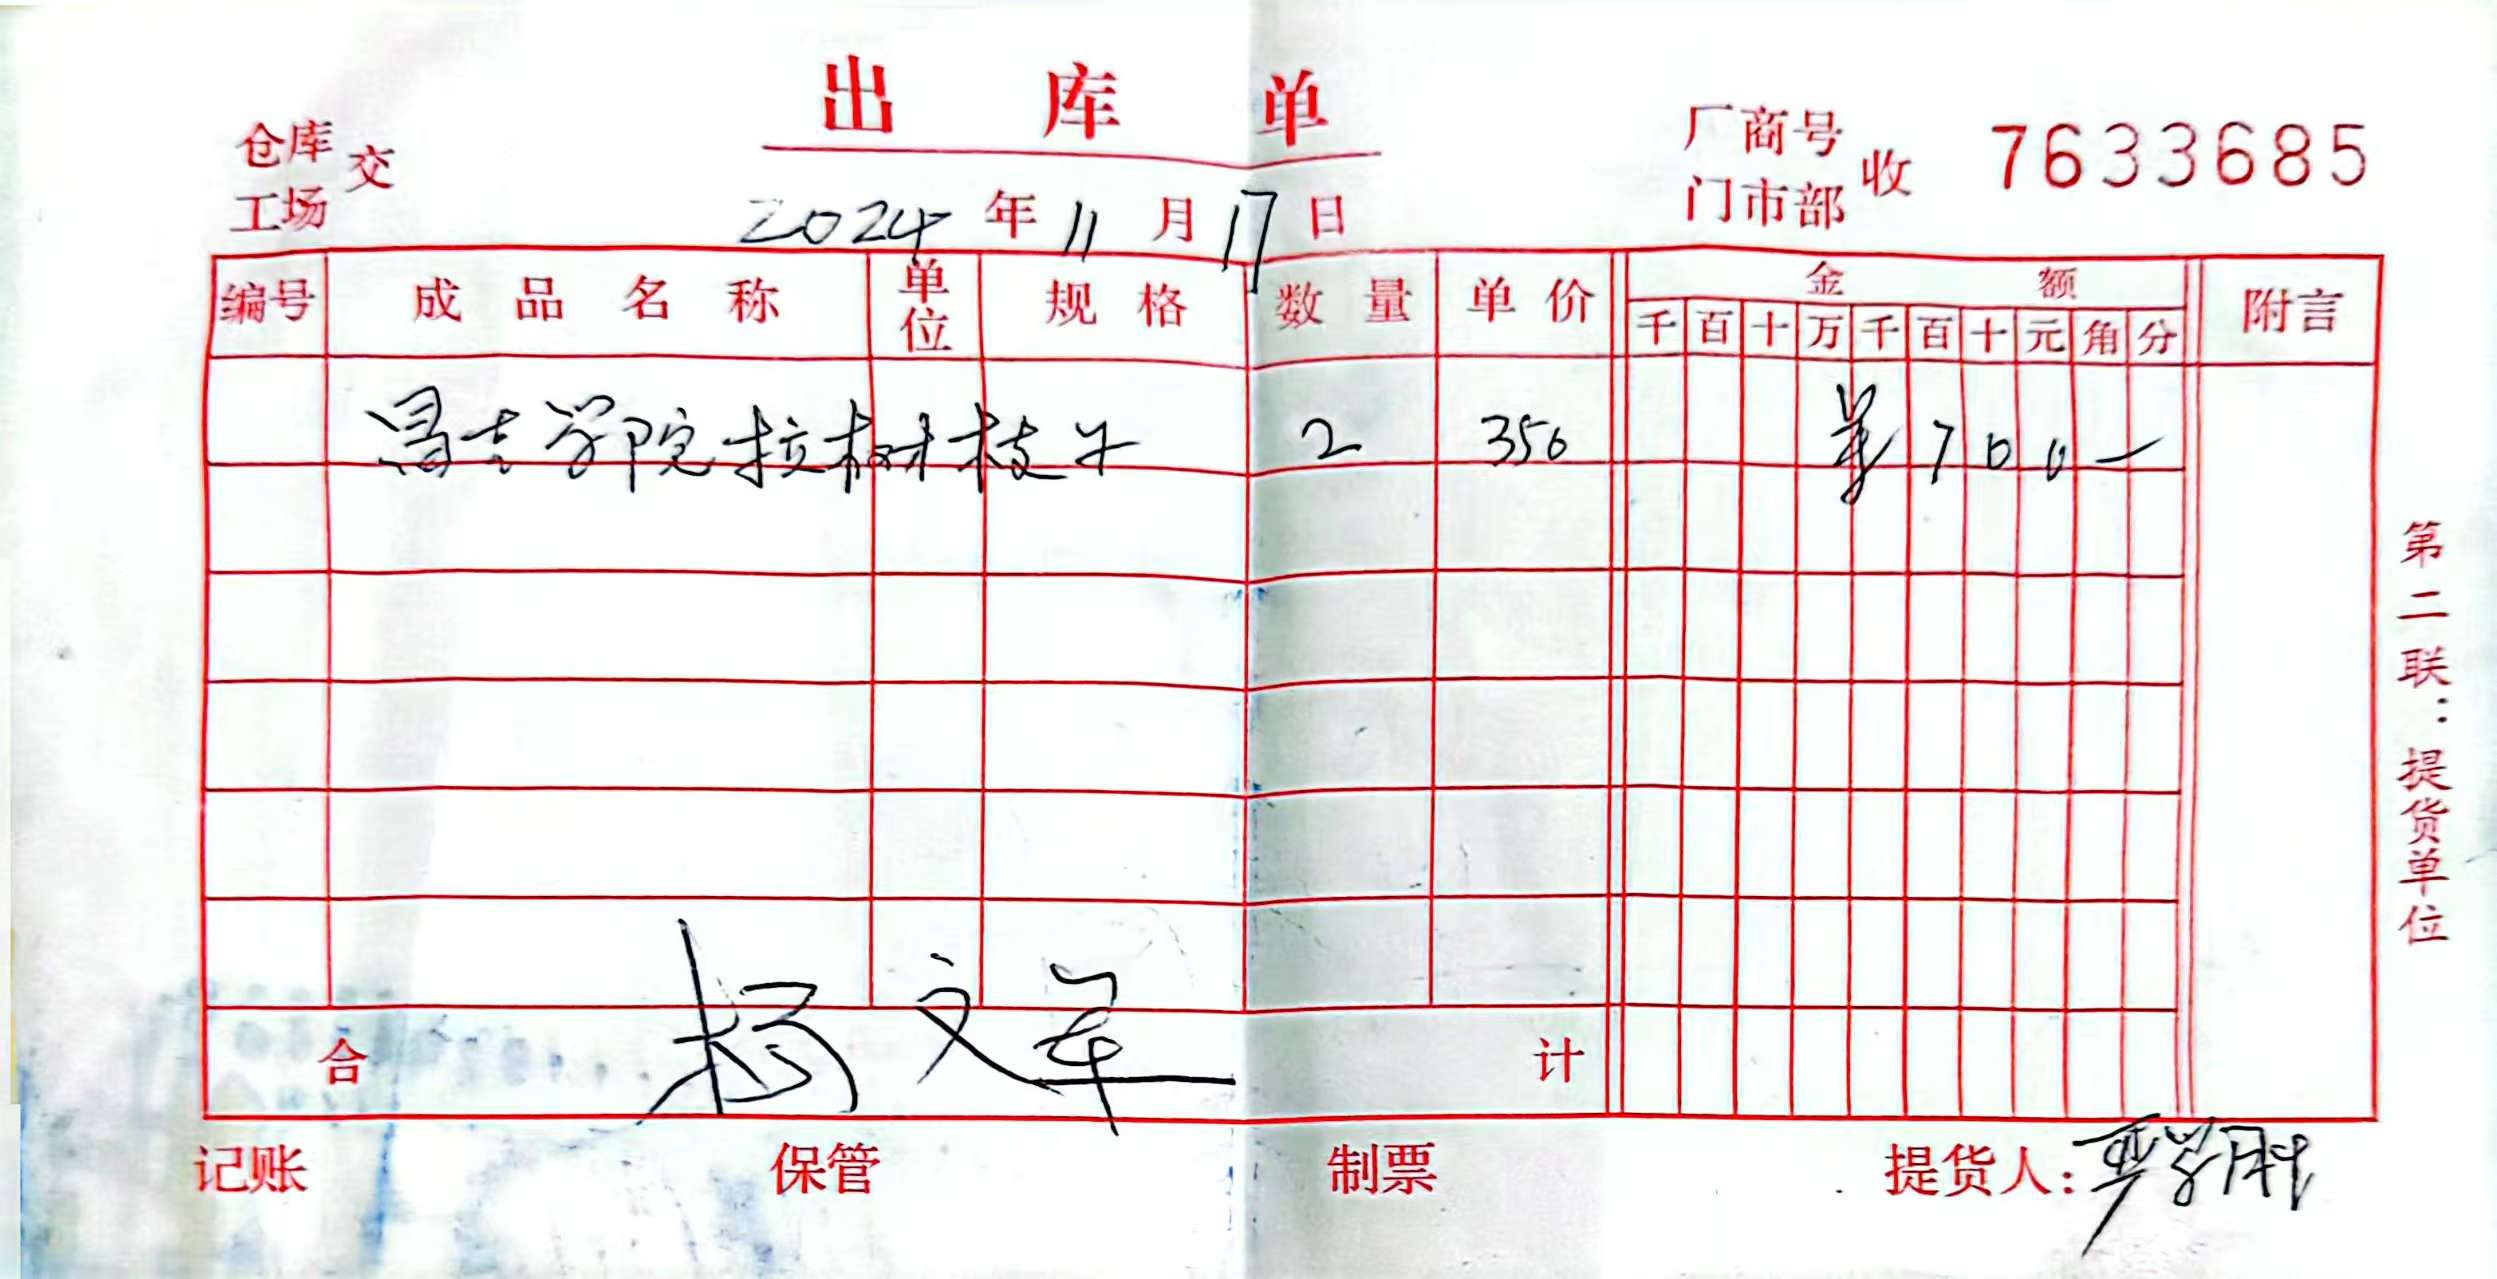 出库单
仓库
工场 交
厂商号
门市部 收 7633685
2024年11月17日
编号 成品名称 单位 规格 数量 单价 金额 附言
千 百 十 万 千 百 十 元 角 分
昌吉学院拉树枝子 2 350 ¥700-
合 计
杨文军
记账 保管 制票 提货人:严学胜
第二联：提货单位